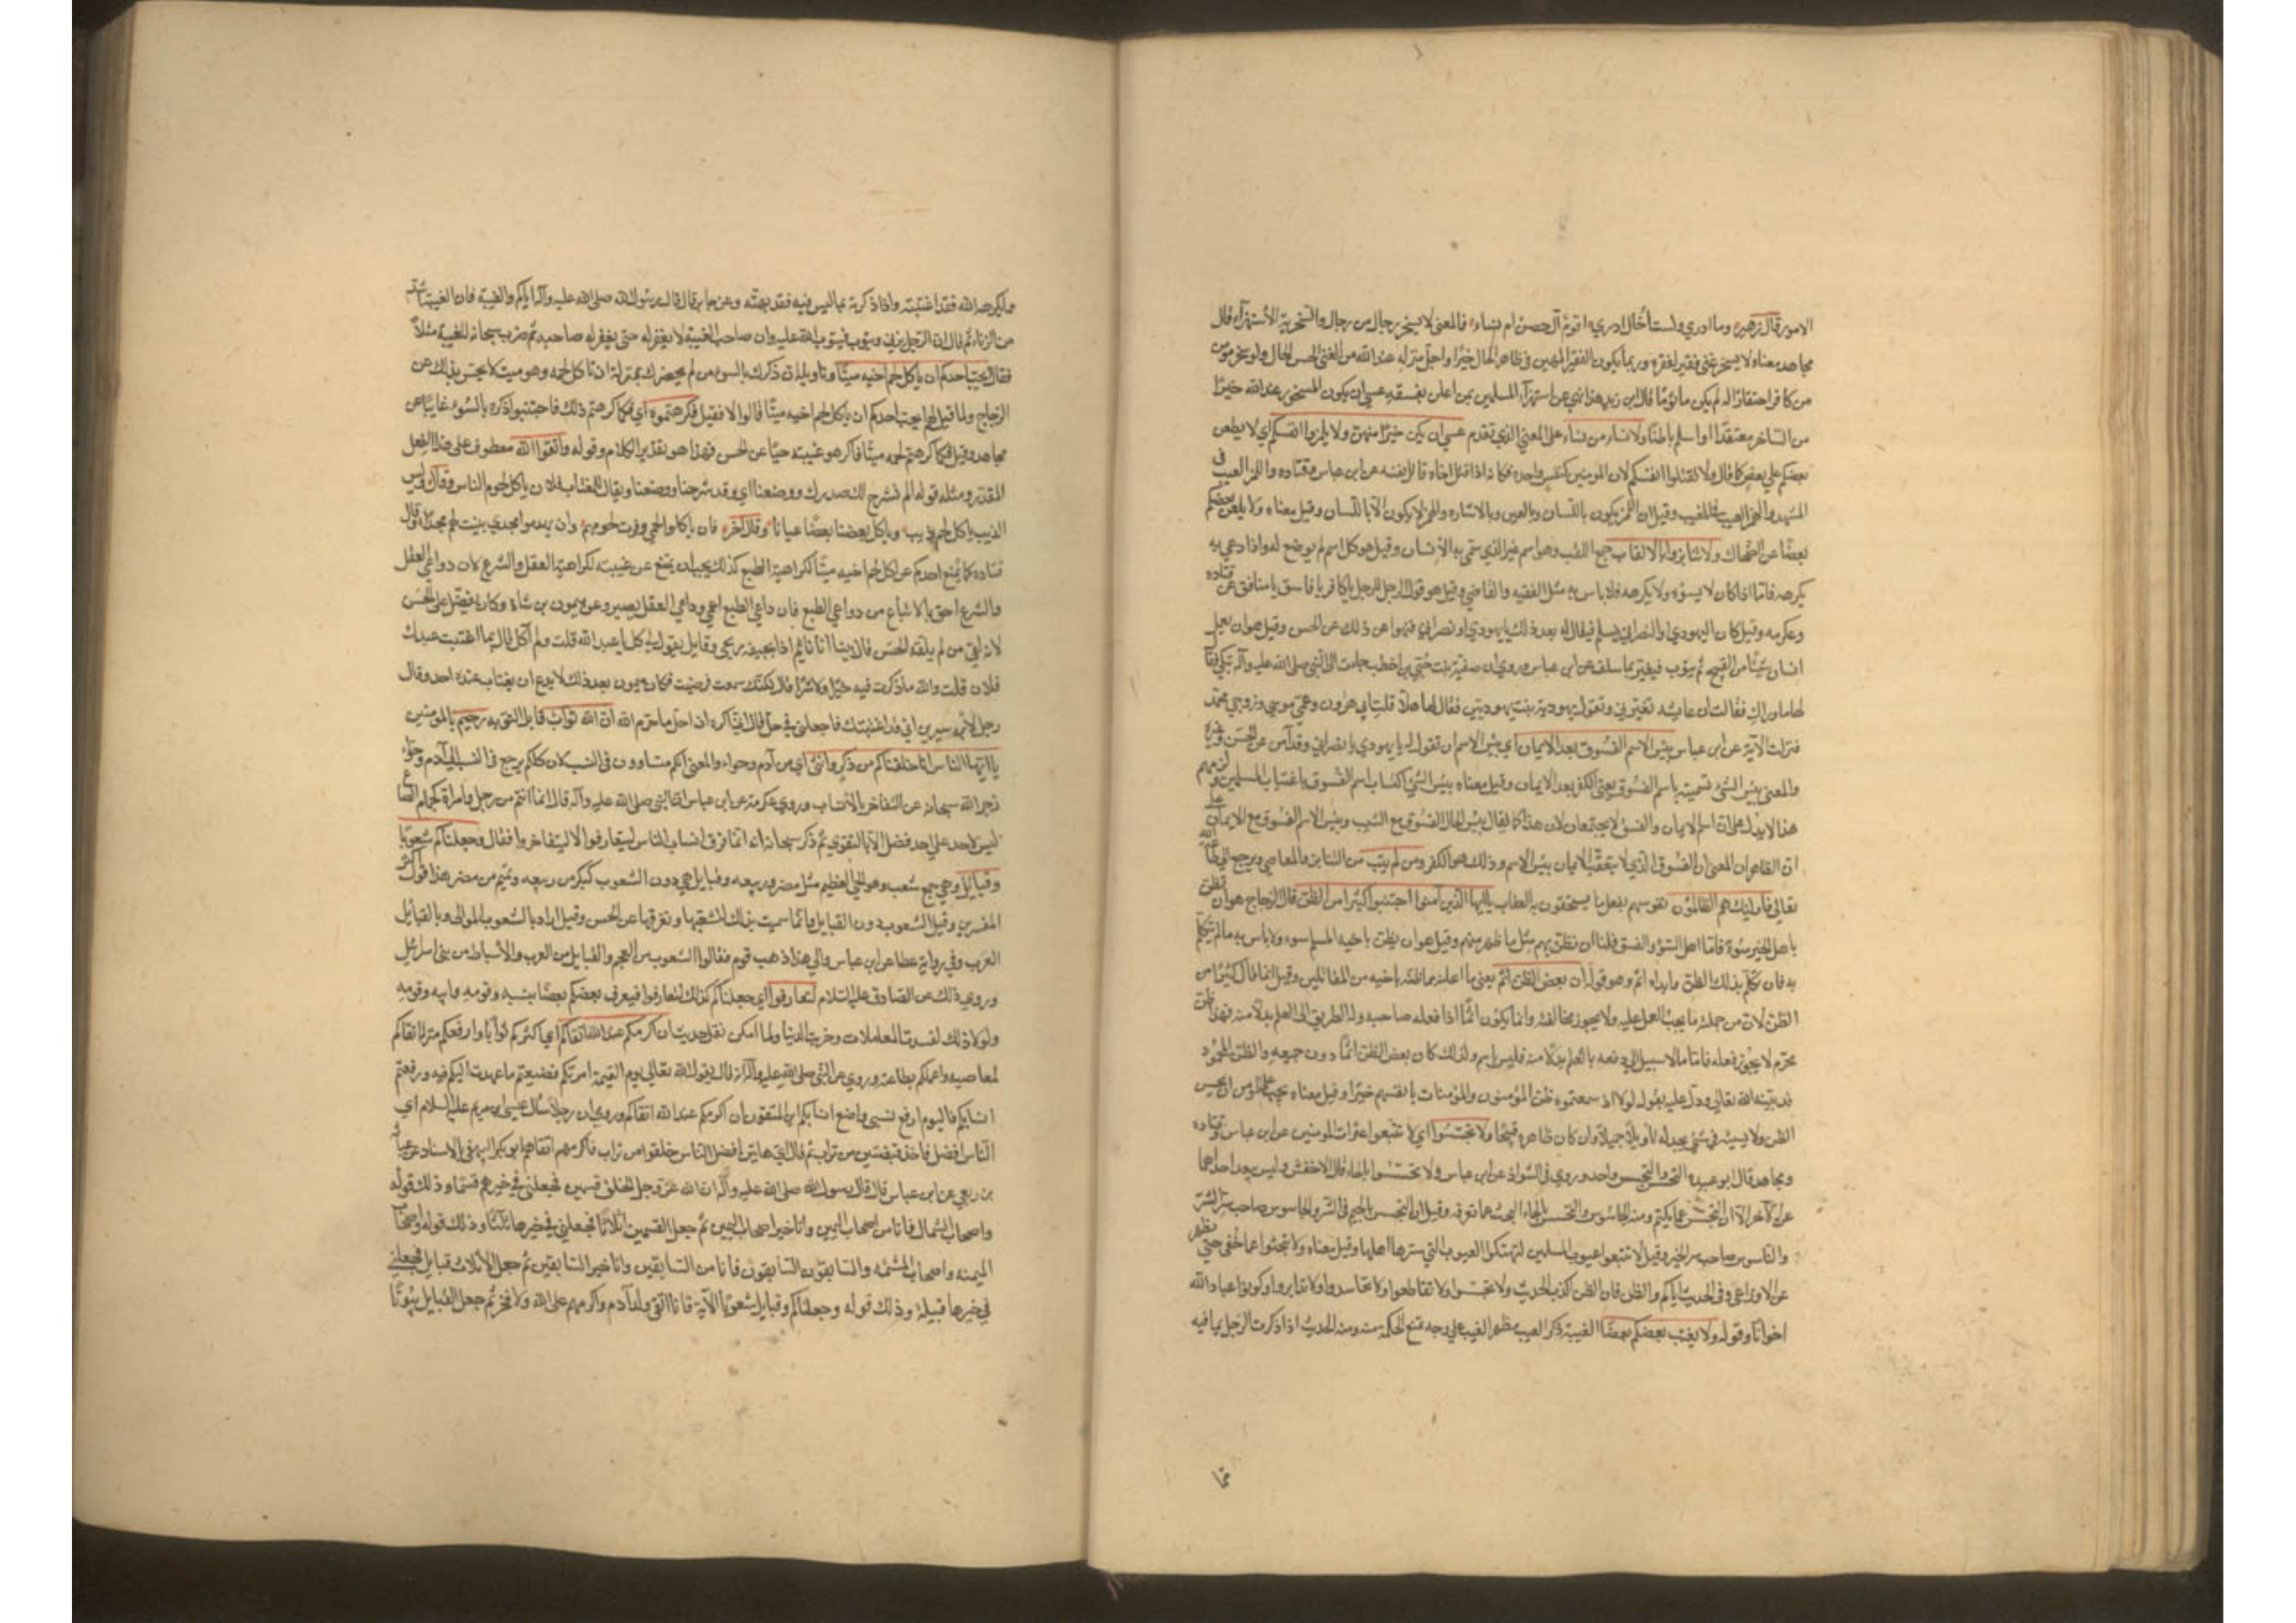 الامور قال زهير وما ادري ولست أخال ادري اقوم آل حصن ام نساء فالمعنى لا يسخر رجال من رجال والسخرية الاستهزآء قال
مجاهد معناه لا يسخر غني فقير لفقره وربما يكون الفقير المهين في ظاهر الحال خيرًا واجل منزله عند الله من الغني الحسن الحال ولو سخر مؤمن
من كافر احتقارًا له لم يكن ماثومًا قال ابن زيد هذا نهي عن استهزآء المسلمين بمن اعلن بفسقه عسى ان يكون المسخر عند الله خيرًا
من الساخر معتقدًا او اسلم باطنًا ولا نساء من نساء على المعنى الذي تقدم عسى ان يكن خيرًا منهن ولا تلمزوا انفسكم اي لا يطعن
بعضكم على بعض كما قال ولا تقتلوا انفسكم لان المومنين كنفس واحده فكانه اذا قتل اخاه قاتل نفسه عن ابن عباس وقتاده واللمز العيب في
المشهد والهمز العيب في المغيب وقيل ان اللمز يكون باللسان وبالعين وبالاشاره والهمز لا يكون الا باللسان وقيل معناه ولا يلعن بعضكم
بعضًا عن الضحاك ولا تنابزوا بالالقاب جمع اللقب وهو اسم غير الذي سمي به الانسان وقيل هو كل اسم لم يوضع له واذا دعي به
يكرهه فاما اذا كان لا يسوؤه ولا يكرهه فلا باس به مثل الفقيه والقاضي وقيل هو قول الرجل للرجل يا كافر يا فاسق يا منافق عن قتاده
وعكرمه وقيل كان اليهودي والنصراني يسلم فيقال له بعد ذلك يا يهودي او نصراني فنهوا عن ذلك عن الحسن وقيل هو ان يعمل
انسان شيئًا من القبيح ثم يتوب فيعير بما سلف عن ابن عباس وروي ان صفية بنت حيي بن اخطب جاءت الى النبي صلى الله عليه وآله تبكي فقال
لها ما وراك فقالت ان عايشه تعيرني وتقول يهودية بنت يهوديين فقال لها هلا قلت ابي هرون وعمي موسى وزوجي محمد
فنزلت الآية عن ابن عباس بئس الاسم الفسوق بعد الايمان اي بئس الاسم ان تقول له يا يهودي يا نصراني وقد آمن عن الحسن وغيره
والمعنى بئس الشئ تسميته باسم الفسوق يعني الكفر بعد الايمان وقيل معناه بئس الشئ اكتساب اسم الفسوق باغتياب المسلمين ولمزهم
هذا لا يدل على ان اسم الايمان والفسق لا يجتمعان لان هذا كما يقال بئس الحال الفسوق مع الشيب وبئس الاسم الفسوق مع الايمان على
ان الظاهر ان المعنى ان الفسوق الذي لا يتعقب الايمان بئس الاسم وذلك هو الكفر ومن لم يتب من التنابز والمعاصي ويرجع الى طاعة الله
تعالى فاوليك هم الظالمون نفوسهم بفعل ما يستحقون به العقاب يا ايها الذين آمنوا اجتنبوا كثيرًا من الظن قال الزجاج هو ان تظن
باهل الخير سوءً فاما اهل السوء والفسق فلنا ان نظن بهم مثل ما ظهر منهم وقيل هو ان يظن باخيه المسلم سوء ولا باس به ما لم يتكلم
به فان تكلم بذلك الظن وابداه اثم وهو قوله ان بعض الظن اثم يعني ما اعلنه مما ظنه باخيه عن المقاتلين وقيل انما قال كثيرًا من
الظن لان من جملته ما يجب العمل عليه ولا يجوز مخالفته وانما يكون اثمًا اذا فعله صاحبه وله الطريق الى العلم بدلًا منه فهذا ظن
محرم لا يجوز فعله فاما ما لا سبيل الى دفعه بالعلم بدلًا منه فليس باثم ولذلك كان بعض الظن اثمًا دون جميعه والظن المحمود
قد بينه الله تعالى ودل عليه بقوله لولا اذ سمعتموه ظن المؤمنون والمؤمنات بانفسهم خيرًا وقيل معناه يجب على المومن ان يحسن
الظن ولا يسيئه في شئ يجد له تاويلًا جميلًا وان كان ظاهره قبيحًا ولا تجسسوا اي لا تتبعوا عثرات المومنين عن ابن عباس وقتاده
ومجاهد قال ابو عبيده التحسس والتجسس واحد وروي في الشواذ عن ابن عباس ولا تحسسوا بالحاء قال الاخفش وليس يبعد احدهما
عن الآخر الا ان التجسس عما يكتم ومنه الجاسوس والتحسس بالحاء البحث عما تعرفه وقيل ان التجسس بالجيم في الشر والجاسوس صاحب سر الشر
والناموس صاحب سر الخير وقيل لا تتبعوا عيوب المسلمين لتهتكوا العيوب التي سترها اهلها وقيل معناه ولا تبحثوا عما خفي حتى يظهر
عن الاوزاعي وفي الحديث اياكم والظن فان الظن اكذب الحديث ولا تجسسوا ولا تقاطعوا ولا تحاسدوا ولا تنابزوا وكونوا عباد الله
اخوانًا وقوله ولا يغتب بعضكم بعضًا الغيبة ذكر العيب بظهر الغيب على وجه تمنع الحكمة منه ومنه الحديث اذا ذكرت الرجل بما فيه
مما
ما يكرهه الله فقد اغتبته واذا ذكرته بما ليس فيه فقد بهته وعن جابر قال قال رسول الله صلى الله عليه وآله اياكم والغيبة فان الغيبة اشد
من الزناء ثم قال ان الرجل يزني ويتوب فيتوب الله عليه وان صاحب الغيبة لا يغفر له حتى يغفر له صاحبه ثم ضرب سبحانه للغيبة مثلًا
فقال ايحب احدكم ان ياكل لحم اخيه ميتًا وتاويله ان ذكرك بالسوء من لم يحضرك بمنزلة ان تاكل لحمه وهو ميت لا يحس بذلك عن
الزجاج ولما قيل لهم ايحب احدكم ان ياكل لحم اخيه ميتًا قالوا لا فقيل فكرهتموه اي فكما كرهتم ذلك فاجتنبوا ذكره بالسوء غايبًا عن
مجاهد وقيل فكما كرهتم لحمه ميتًا فاكرهوا غيبته حيًا عن الحسن فهذا هو تقدير الكلام وقوله واتقوا الله معطوف على هذا الفعل
المقدر ومثله قوله الم نشرح لك صدرك ووضعنا اي وقد شرحنا ووضعنا ويقال للمغتاب فلان ياكل لحوم الناس وقال وليس
الذيب ياكل لحم ذيب وياكل بعضنا بعضًا عيانا وقال آخر فان ياكلوا لحمي وفرت لحومهم وان يهدموا مجدي بنيت لهم مجدًا وقال
قتاده كما يمتنع احدكم عن اكل لحم اخيه ميتًا لكراهية الطبع كذلك يجب ان يمتنع عن غيبته لكراهية العقل والشرع لان دواعي العقل
والشرع احق بالاتباع من دواعي الطبع فان داعي الطبع اعمى وداعي العقل بصير وعن ميمون بن شاة وكان يفضل على الحسن
لانه لقي من لم يلقه الحسن قال بينا انا نائم اذا بجيفة زنجي وقايل يقول لي كل يا عبد الله قلت ولم آكل قال بما اغتبت عبدك
فلان قلت والله ما ذكرت فيه خيرًا ولا شرًا قال لكنك سمعت فرضيت فكان ميمون بعد ذلك لا يدع ان يغتاب عنده احد وقال
رجل لابن سيرين اني قد اغتبتك فاجعلني في حل قال اني اكره ان احل ما حرم الله ان الله تواب قابل التوبه رحيم بالمومنين
يا ايها الناس انا خلقناكم من ذكر وانثى اي من آدم وحواء والمعنى انكم متساوون في النسب لان كلكم يرجع في النسب الى آدم وحواء
زجر الله سبحانه عن التفاخر بالانساب وروي عكرمة عن ابن عباس ان النبي صلى الله عليه وآله قال انما انتم من رجل وامراة كجمام الصاع
ليس لاحد على احد فضل الا بالتقوى ثم ذكر سبحانه انه انما فرق انساب الناس ليتعارفوا لا ليتفاخروا فقال وجعلناكم شعوبًا
وقبايل وهي جمع شعب وهو الحي العظيم مثل مضر وربيعه وقبايل هي دون الشعوب كبكر من ربيعه وتميم من مضر هذا قول اكثر
المفسرين وقيل الشعوب دون القبايل وانما سميت بذلك لتشعبها وتفرقها عن الحسن وقيل اراد بالشعوب الموالي وبالقبائل
العرب وفي رواية عطا عن ابن عباس والى هذا ذهب قوم فقالوا الشعوب من العجم والقبايل من العرب والاسباط من بني اسرائيل
وروي ذلك عن الصادق عليه السلام لتعارفوا اي جعلناكم كذلك لتعارفوا فيعرف بعضكم بعضًا بنسبه وقومه وابيه وقومه
ولولا ذلك لفسدت المعاملات وخربت الدنيا ولما امكن نقل حديث ان اكرمكم عند الله اتقاكم اي اكثركم ثوابًا وارفعكم منزلة اتقاكم
لمعاصيه واعملكم بطاعته وروي عن النبي صلى الله عليه وآله انه قال يقول الله تعالى يوم القيمة امرتكم فضيعتم ما عهدت اليكم فيه ورفعتم
انسابكم فاليوم ارفع نسبي واضع انسابكم اين المتقون ان اكرمكم عند الله اتقاكم وروي ان رجلًا سأل عيسى ابن مريم عليه السلام اي
الناس افضل فاخذ قبضتين من تراب ثم قال اي هاتين افضل الناس خلقوا من تراب فاكرمهم اتقاهم ابو بكر البيهقي بالاسناد عن عباية
بن ربعي عن ابن عباس قال قال رسول الله صلى الله عليه وآله ان الله عز وجل جعل الخلق قسمين فجعلني في خيرهم قسمًا وذلك قوله
واصحاب الشمال فانا من اصحاب اليمين وانا خير اصحاب اليمين ثم جعل القسمين اثلاثًا فجعلني في خيرها ثلثًا وذلك قوله واصحاب
الميمنه واصحاب المشئمه والسابقون السابقون فانا من السابقين وانا خير السابقين ثم جعل الاثلاث قبايل فجعلني
في خيرها قبيلة وذلك قوله وجعلناكم وقبايل شعوبًا الآية فانا اتقى ولد آدم واكرمهم على الله ولا فخر ثم جعل القبايل بيوتًا